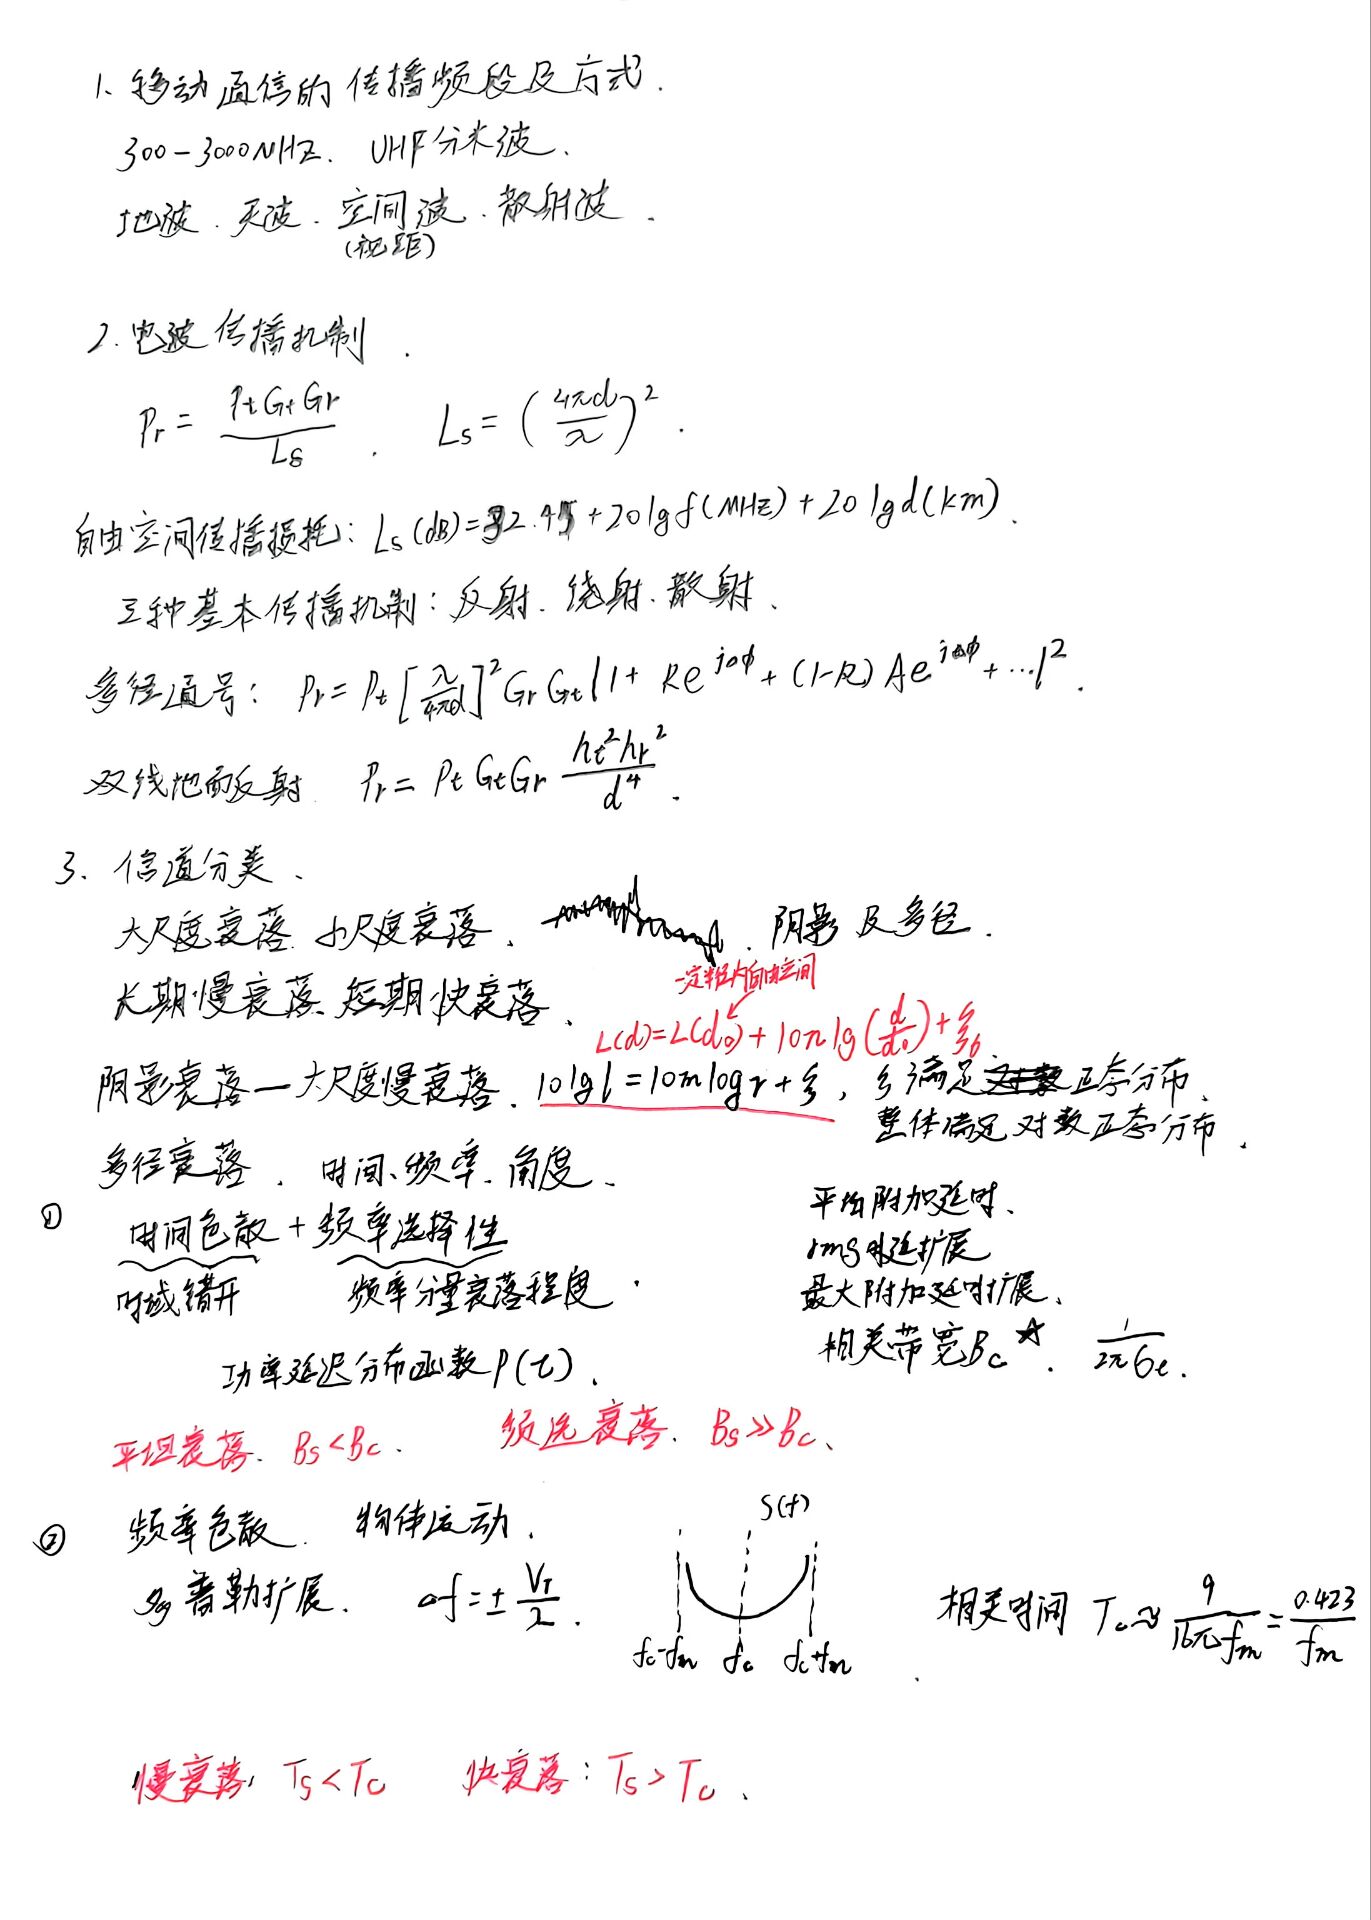 1、移动通信的传播频段及方式.
300-3000MHZ. UHF分米波.
地波、天波、空间波、散射波.
(视距)
2.电波传播机制.
Pr = PtGtGr/Ls . Ls = (4πd/λ)².
自由空间传播损耗: Ls(dB)=32.45+20lgf(MHZ)+20lgd(km).
三种基本传播机制: 反射、绕射、散射、
多径信号: Pr = Pt[λ/4πd]²GrGt|1+Re^jΔφ+(1-R)Ae^jΔφ+…|².
双线地面反射 Pr = PtGtGr ht²hr²/d⁴.
3、信道分类、
大尺度衰落 小尺度衰落、 阴影及多径.
长期慢衰落、短期快衰落、
一定半径内自由空间
L(d)=L(d₀)+10nlg(d/d₀)+ξσ
阴影衰落—大尺度慢衰落、10lgl=10mlogr+ξ, ξ满足正态分布、
整体满足对数正态分布、
多径衰落、时间、频率、角度、
① 时间色散+频率选择性
时域错开 频率分量衰落程度.
功率延迟分布函数P(τ)、
平均附加延时、
rms时延扩展
最大附加延时扩展、
相关带宽Bc☆、 1/2πστ.
平坦衰落、Bs<Bc. 频选衰落、Bs≫Bc、
② 频率色散 物体运动、
多普勒扩展、 Δf=±Vr/λ.
S(f)
fc-fm fc fc+fm
相关时间 Tc≈9/16πfm=0.423/fm
慢衰落: Ts<Tc 快衰落: Ts>Tc、